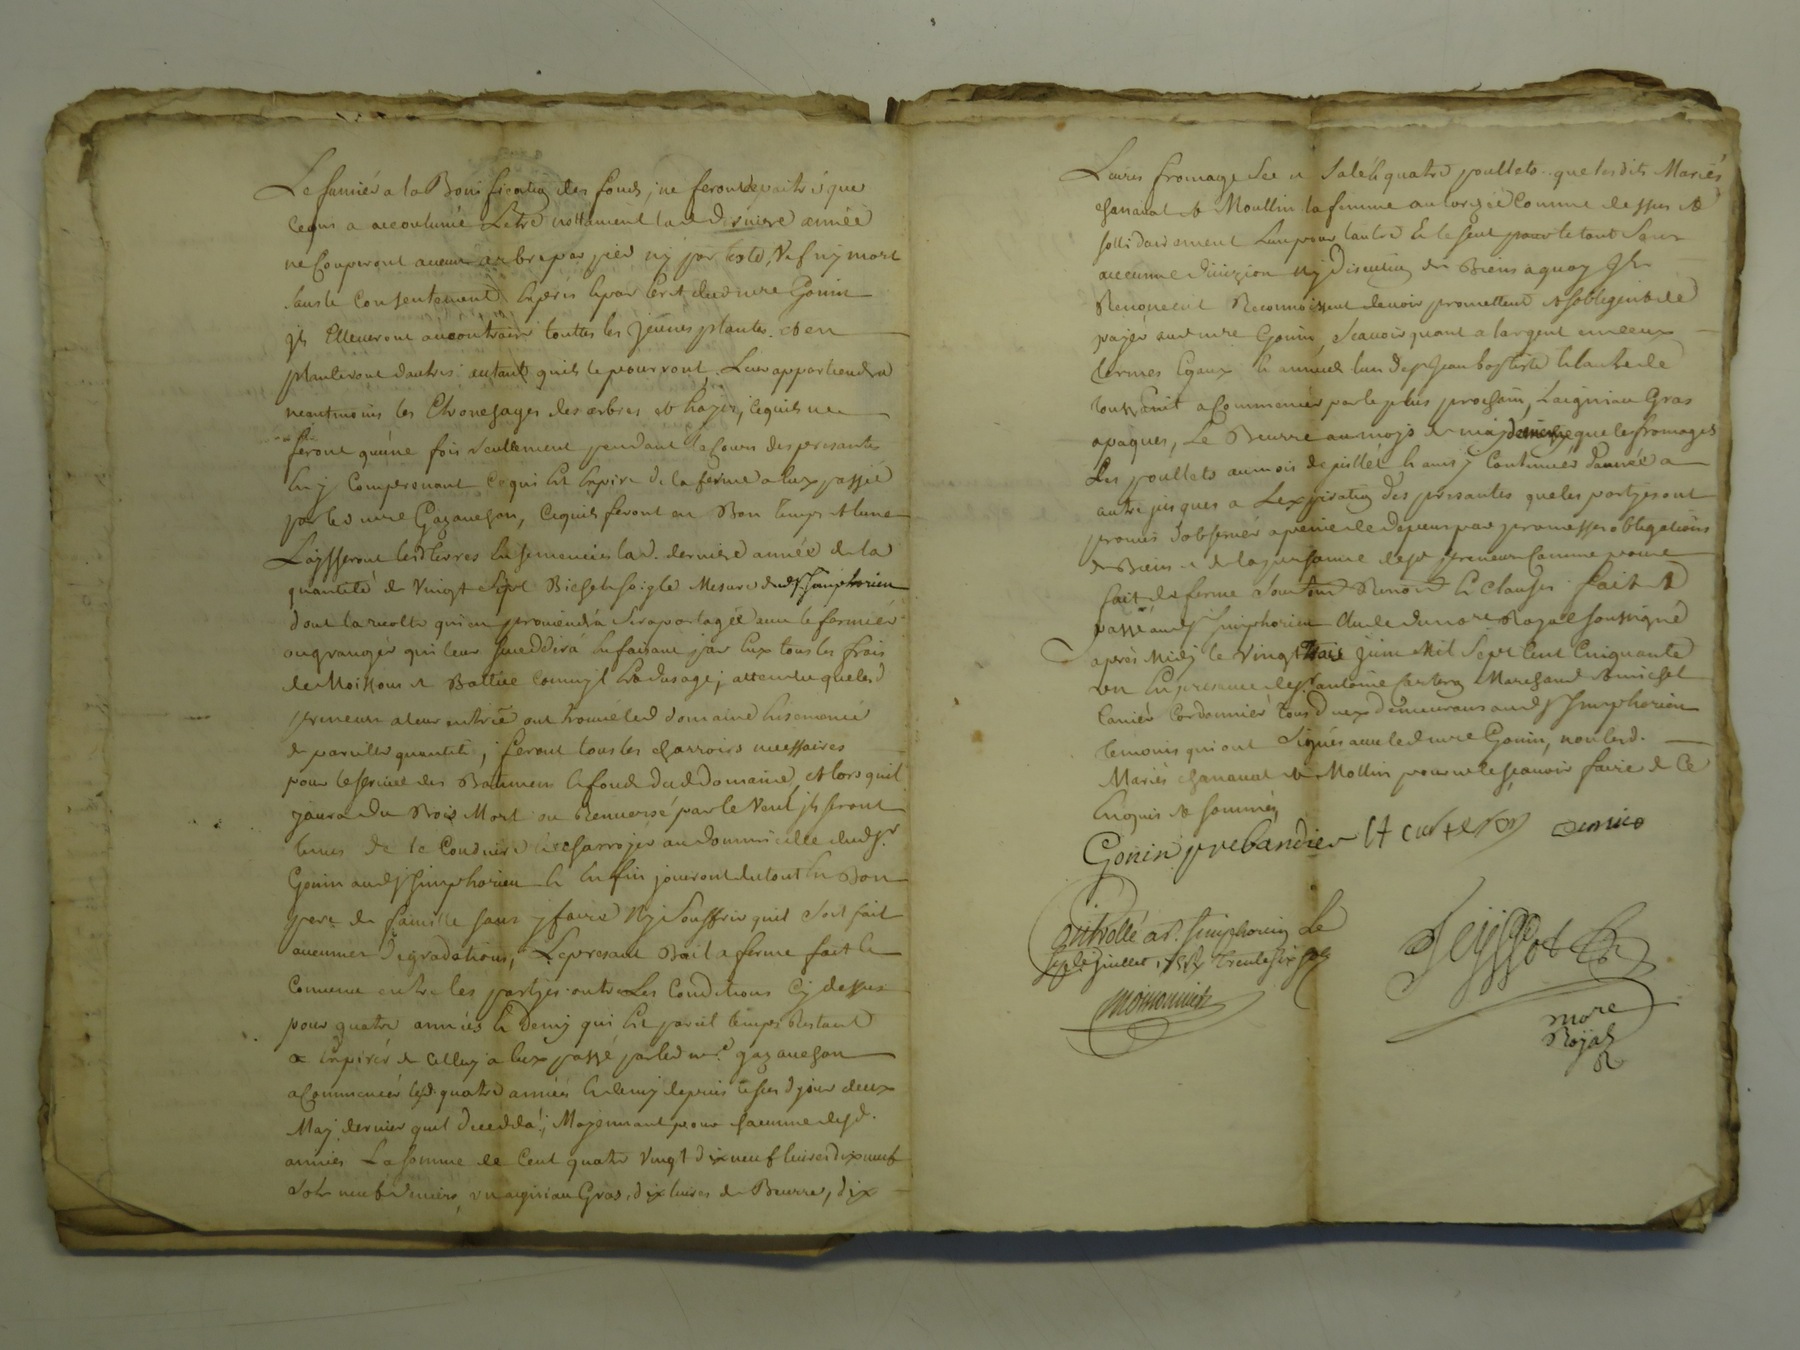 Le fumier a la Bonification des fonds, ne feront depaitre que
ce qui a accoutumé Lêtre nottament lad. derniere année
ne Couperont aucun arbre par pied ny par teste, Vif ny mort
sans le Consentement Exprés & par Ecrit dud. mre Gonin
ils Elleveront au contraire touttes les jeunes plantes et en
planteront dautres autant quils le pourront, Leur appartiendra
neantmoins les Ebronchages des arbres et hayes, ce quils ne
feront quune fois seullement pendant le Cours des presantes
En y Comprenant ce qui Est Expiré de la ferme a Eux passée
par led. mre Gazanchon, Ce quils feront en Bon temps et lune
Laysseront lesd. terres Ensemencées lad. derniere année de la
quantité de Vingt Sept Bichets soigle Mesure dud. St. Simphorien
dont la recolte qui en proviendrá sera partagée avec le fermier
ou granger qui leur succedderá en faisant par Eux tous les frais
de Moissons et Batture comme il Est dusage, attendu que lesd.
preneurs a leur entrée ont trouvé led. domaine Ensemencé
de pareille quantité, feront tous les charroirs necessaires
pour le service des Batimens & fonds dud. Domaine, et lors quil
y aura du Bois Mort ou Renversé par le Vent ils seront
tenus de le Conduire & charroyer au dommicille dud. Sr.
Gonin aud. St. Simphorien & Enfin jouiront du tout En Bon
pere de famille sans y faire Ny Souffrir quil soit fait
aucunes Degradations, Le presant Bail a ferme fait &
Convenu entre les partyes outre Les Conditions Cy dessus
pour quatre années & Demy qui Est pareil temps Restant
a Expirer de Celluy a Eux passé par led. mre. gazanchon
a Commencer lesd. quatre années & demy depuis le jour deux
May dernier quil deceddá, Moyennant pour chacune desd.
années La somme de Cent quatre Vingt dix neuf livres dix neuf
sols neuf deniers, un aigniau Gras, dix livres de Beurre, dix
Livres fromage sec et salé & quatre poullets que lesdits Mariés
chanavat et Moullin la femme authorizée Comme dessus et
sollidairement Lun pour lautre & le seul pour le tout Sans
aucunne divizion Ny Discution de Biens a quoy Ils
Renoncent Reconnoissent devoir promettent et sobligent de
payer aud. mre Gonin, Scavoir quant a largent en deux
termes Egaux & annuels lun a la St. Jean baptiste & lautre de
toussaint a Commencer par le plus prochain, Laigniau Gras
a paques, Le Beurre au mois de may de mesme que les fromages
Les poullets au mois de juillet & ainsy Continuer dannée a
autre jusques a Lexpiration des presantes que les partyes ont
promis dobserver a peine de depens par promesses obligations
de Biens et de la personne desd. preneurs Comme pour
fait de ferme soumission Renon. & clauses fait &
passé aud. St. Simphorien Etude du nore Royal soussigné
après Midy le Vingt trois juin Mil Sept Cent Cinquante
un En presence de Sr. antoine Carteron Marchand et michel
Cornier Cordonnier tous deux demeurans aud. St. Simphorien
temoins qui ont Signés avec led. mre Gonin, non lesd.
Mariés chanavat et Mollin pour ne le sçavoir faire de Ce
Enquis et sommés
Gonin prebandier A carteron cornier
Controllé a St. Simphorien Le
sept. juillet 1751 Trente six sols
Teyssot
nore
Royal